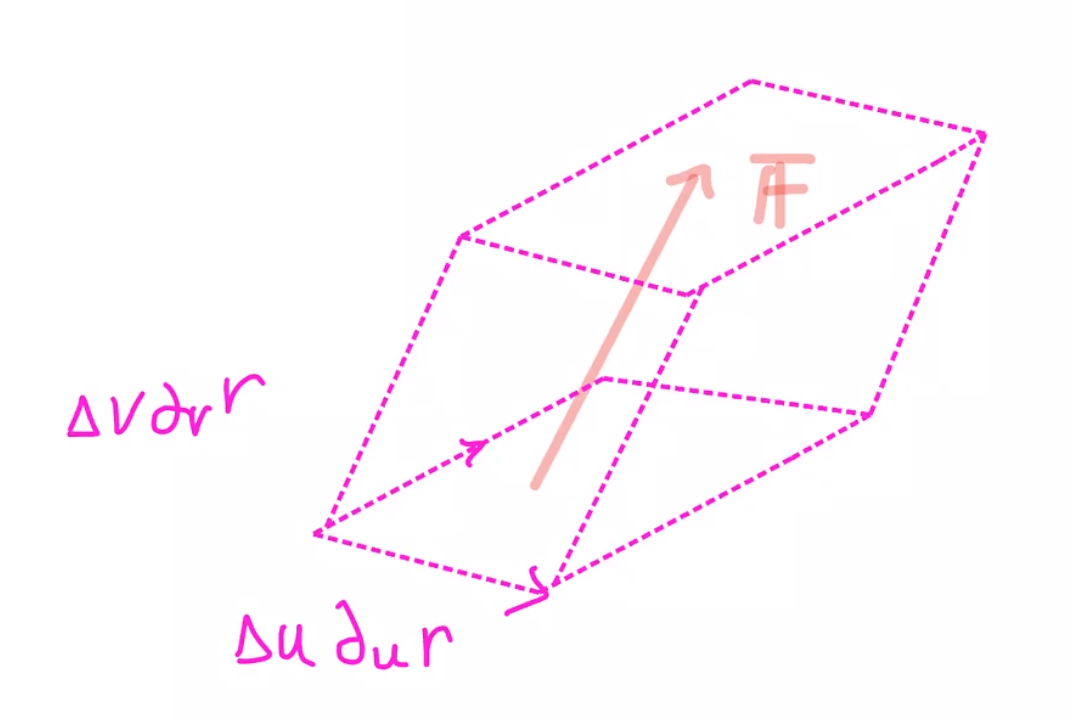 F̅
Δv∂ᵥr
Δu∂ᵤr